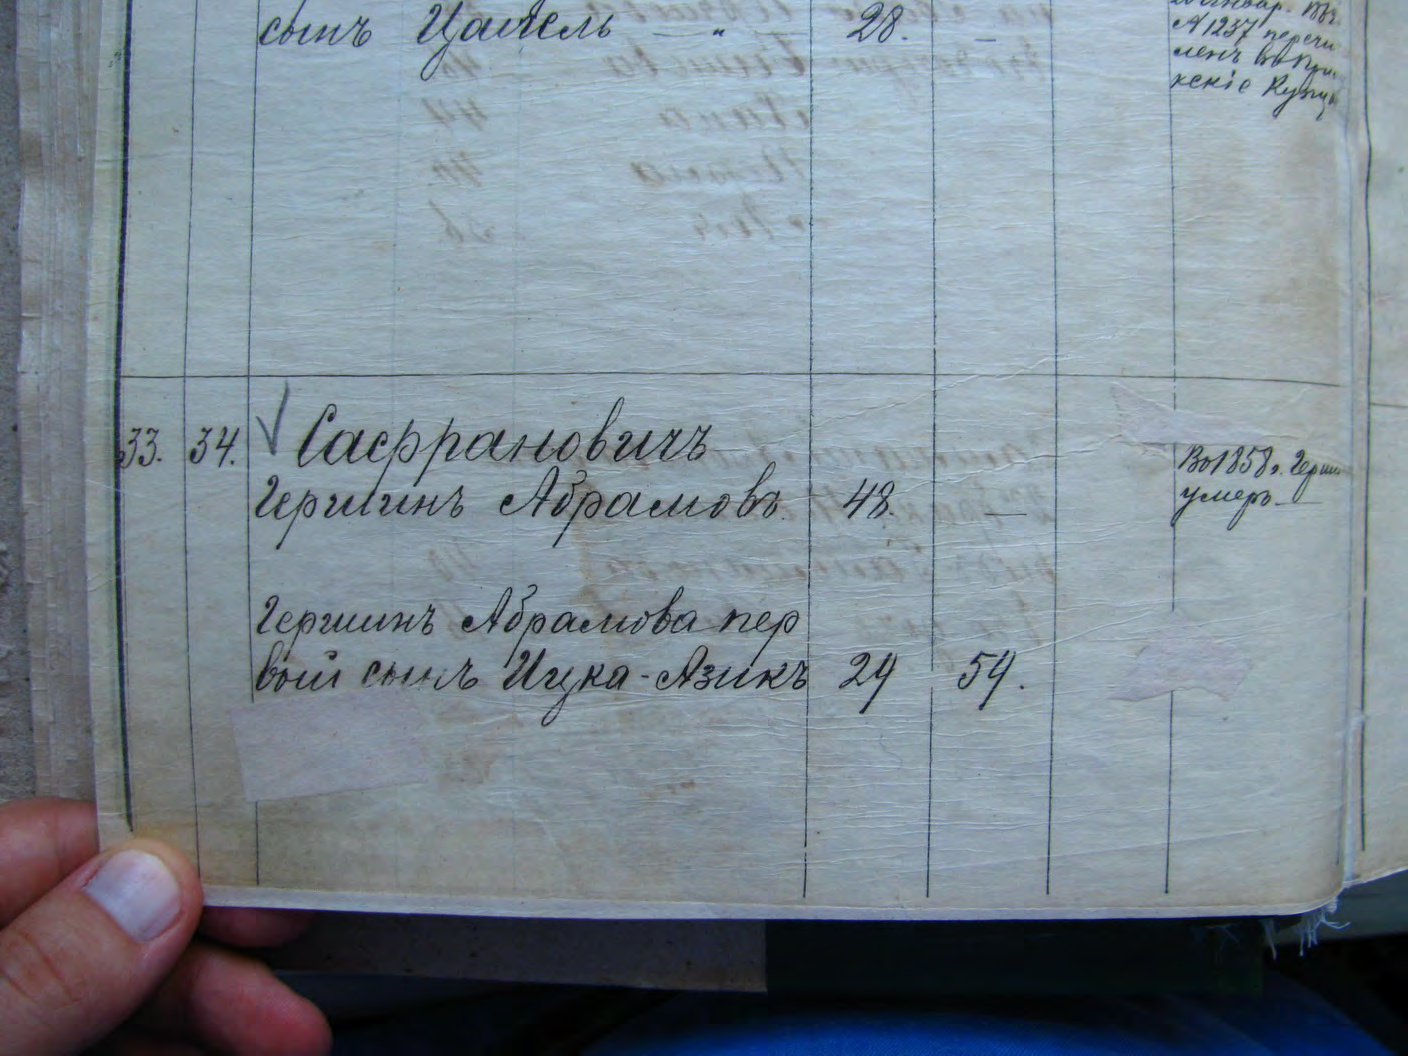 сынъ Цалель — " 28. —
А 1237 перечи
ленъ въ
скіе Купц
33. 34. Сафрановичъ
Гершинъ Абрамовъ. 48. — Во 1858 г. Герш
умеръ —
Гершинъ Абрамова пер
вый сынъ Ицка-Азикъ 29 59.